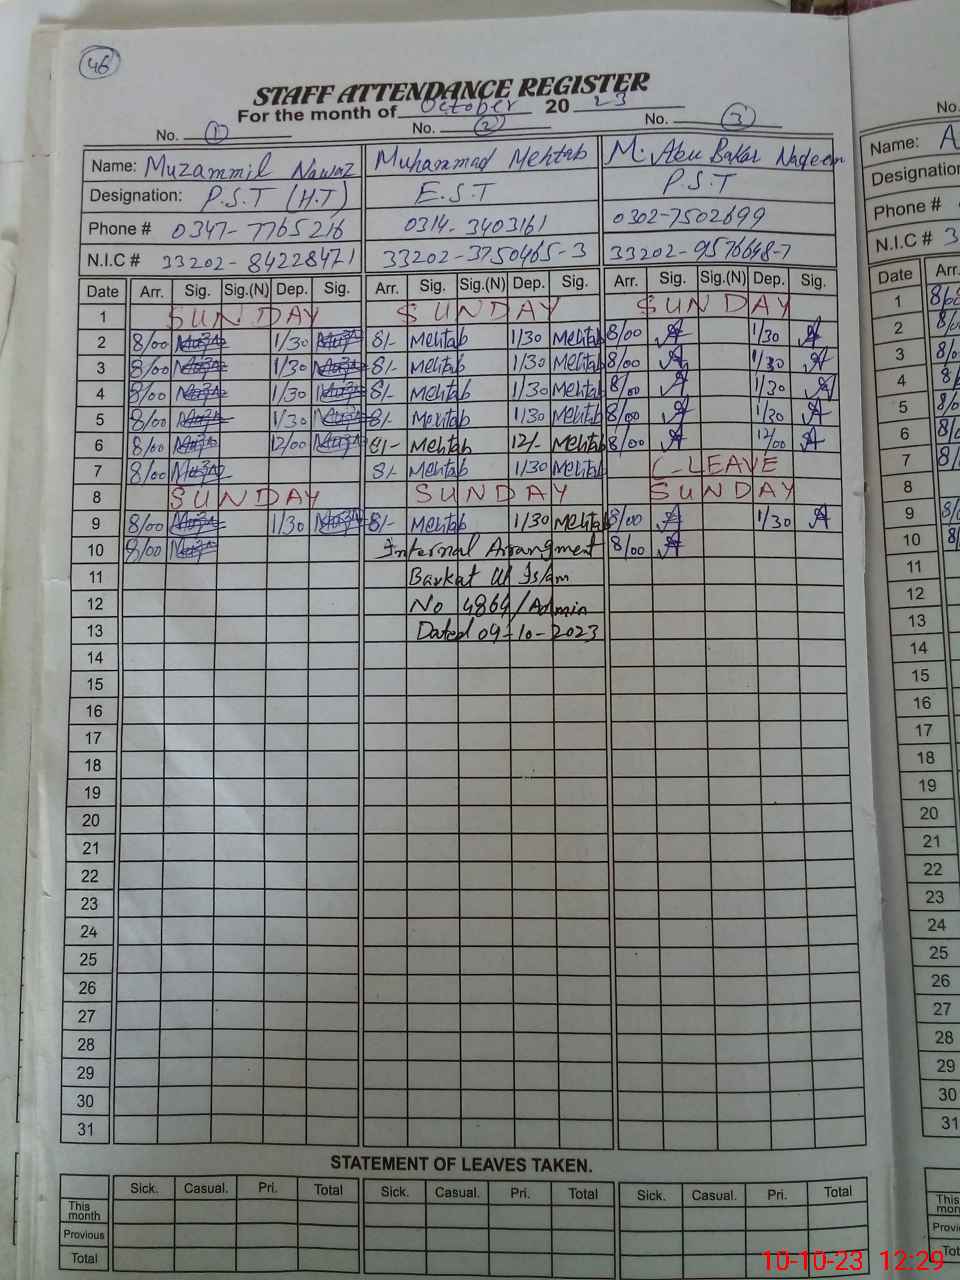 46
STAFF ATTENDANCE REGISTER
For the month of October 20 23
No. 1 No. 2 No. 3
Name: Muzammil Nawaz Muhammad Mehtab M. Abu Bakar Nadeem
Designation: P.S.T (H.T) E.S.T P.S.T
Phone # 0347-7765216 0314-3403161 0302-7502699
N.I.C # 33202-84228471 33202-3750465-3 33202-9576648-7
Date Arr. Sig. Sig.(N) Dep. Sig. Arr. Sig. Sig.(N) Dep. Sig. Arr. Sig. Sig.(N) Dep. Sig.
1 SUNDAY SUNDAY SUNDAY
2 8/00 1/30 8/- Mehtab 1/30 Mehtab 8/00 1/30
3 8/00 1/30 8/- Mehtab 1/30 Mehtab 8/00 1/30
4 8/00 1/30 8/- Mehtab 1/30 Mehtab 8/00 1/30
5 8/00 1/30 8/- Mehtab 1/30 Mehtab 8/00 1/30
6 8/00 12/00 8/- Mehtab 12/- Mehtab 8/00 12/00
7 8/00 8/- Mehtab 1/30 Mehtab C-LEAVE
8 SUNDAY SUNDAY SUNDAY
9 8/00 1/30 8/- Mehtab 1/30 Mehtab 8/00 1/30
10 8/00 Internal Arrangment 8/00
11 Barkat Ul Islam
12 No 4864/Admin
13 Dated 09-10-2023
14
15
16
17
18
19
20
21
22
23
24
25
26
27
28
29
30
31
STATEMENT OF LEAVES TAKEN.
Sick. Casual. Pri. Total Sick. Casual. Pri. Total Sick. Casual. Pri. Total
This month
Previous
Total
No.
Name: A
Designation
Phone #
N.I.C # 3
Date Arr.
1 8/00
2 8/0
3 8/0
4 8/
5 8/0
6 8/
7 8/
8
9 8/
10 8/
11
12
13
14
15
16
17
18
19
20
21
22
23
24
25
26
27
28
29
30
31
This
mon
Previ
Tot
10-10-23 12:29